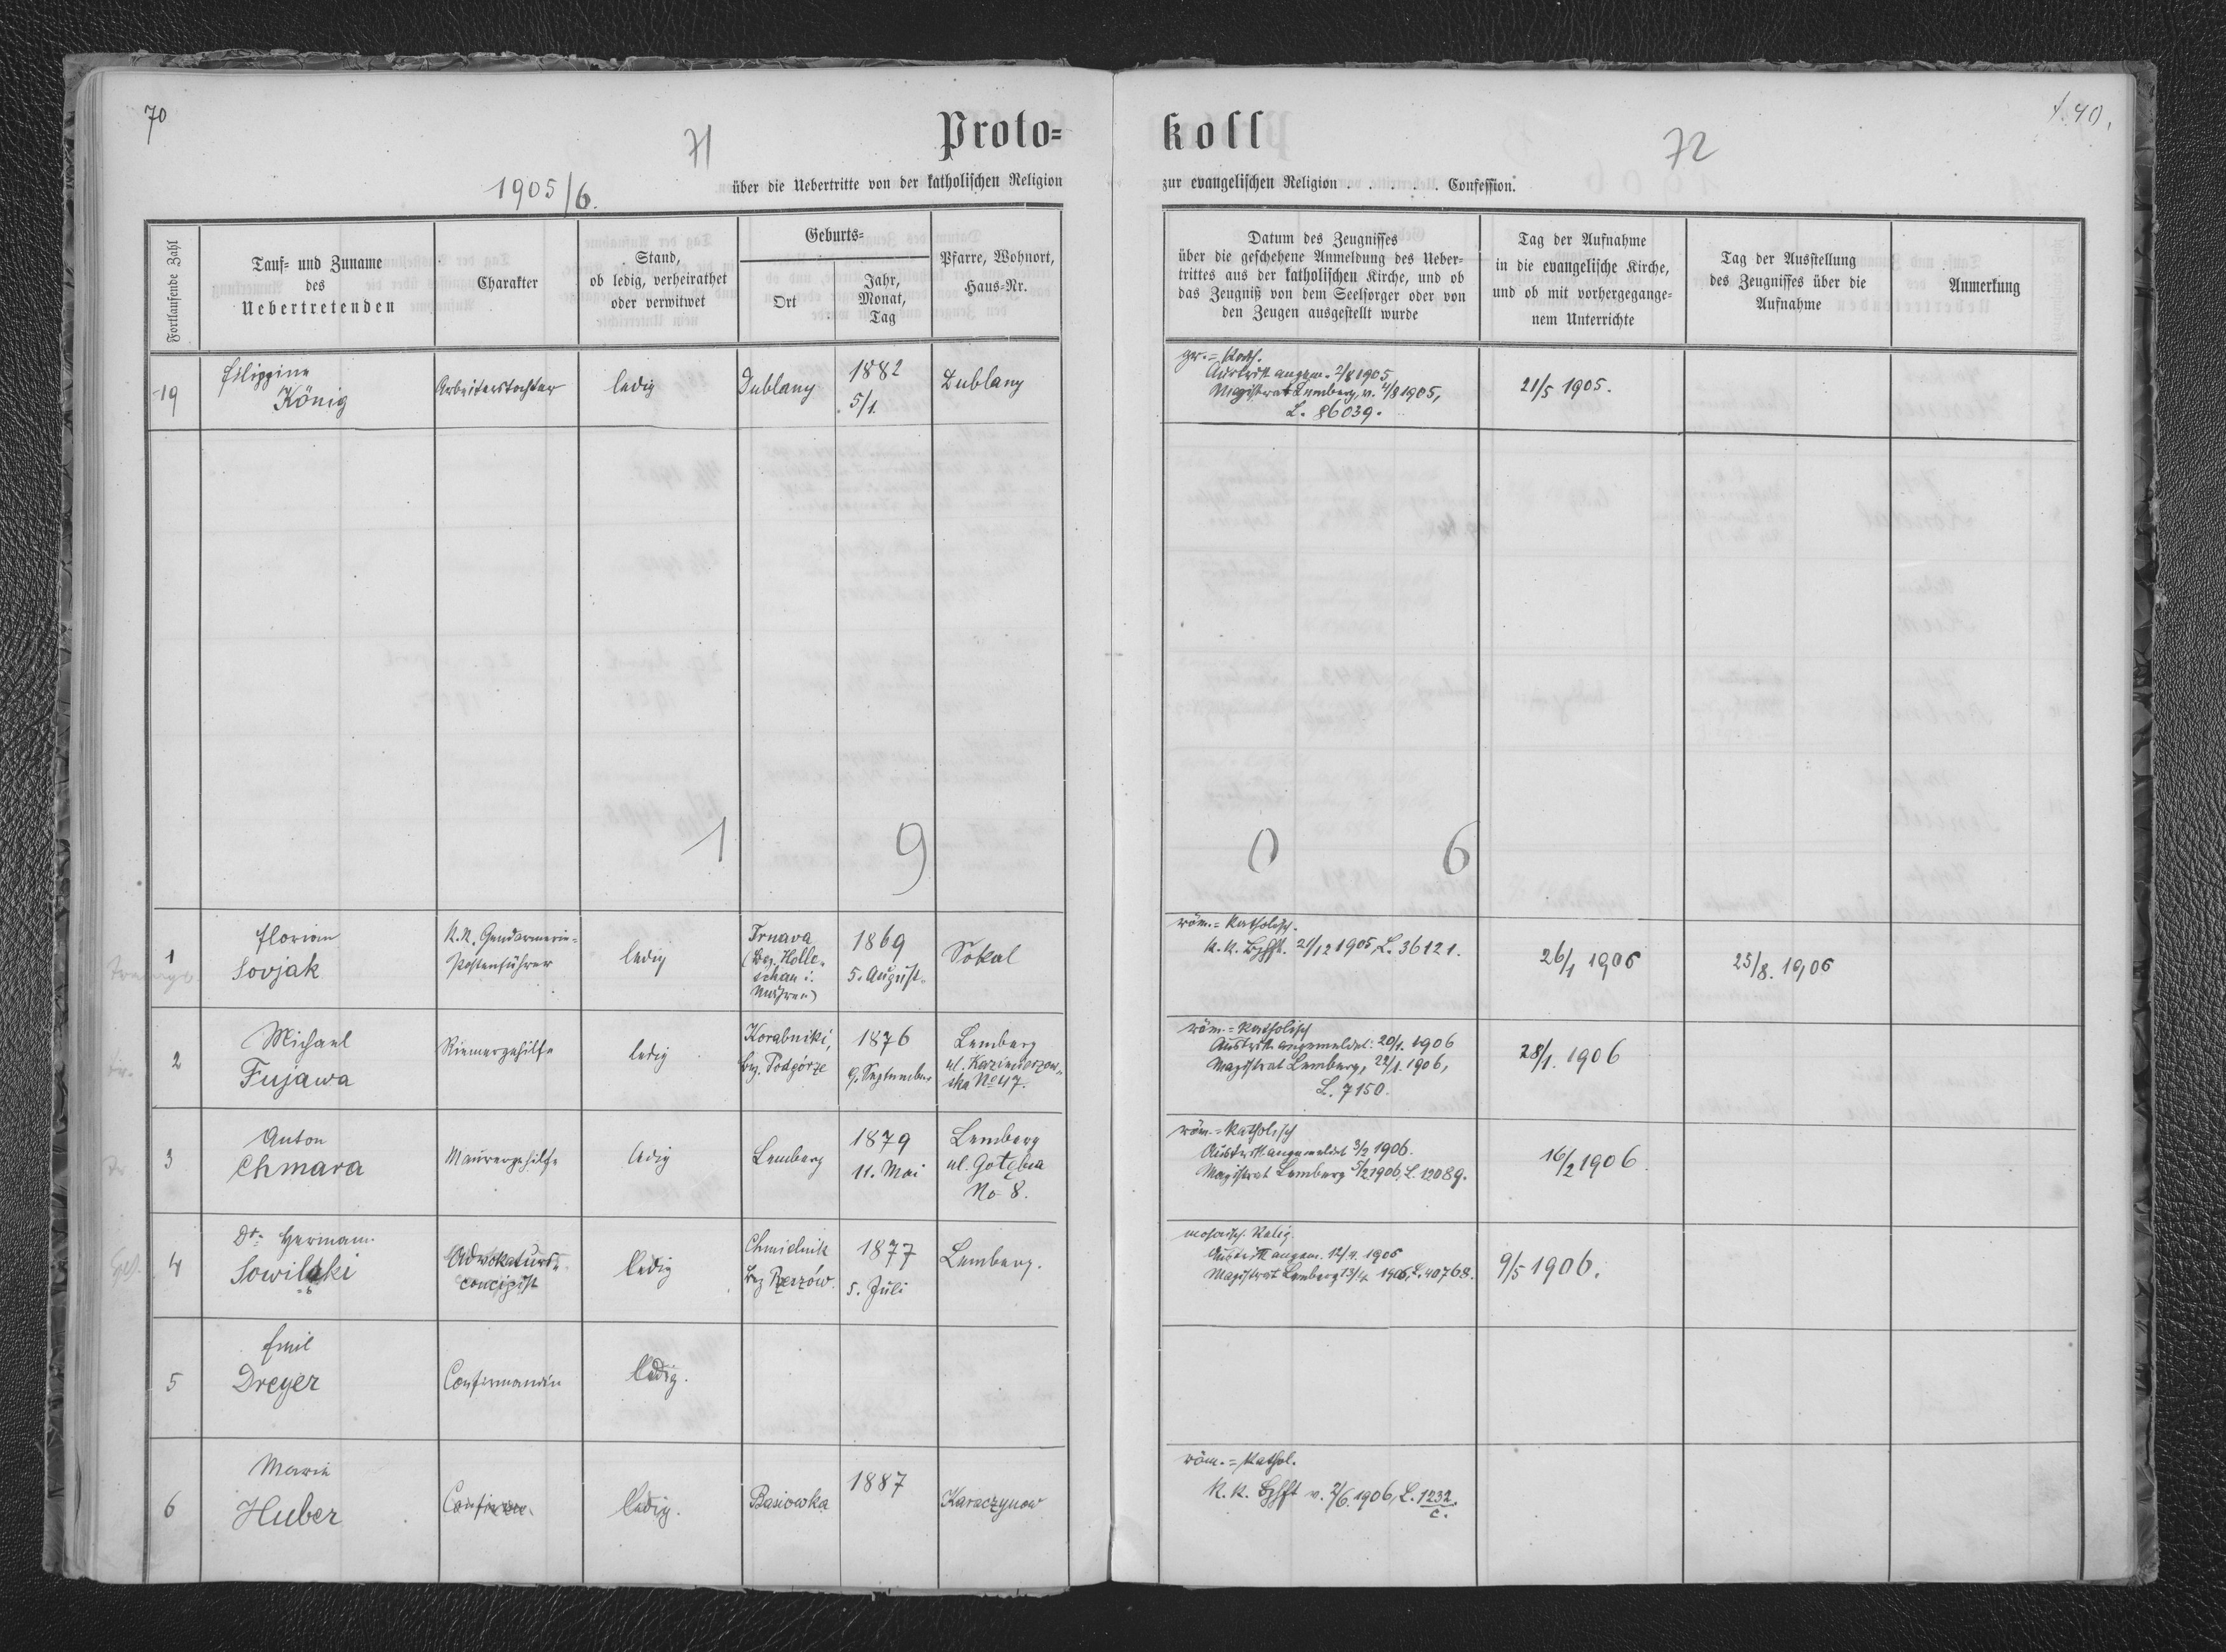 70
71
1905/6.
Proto=
über die Uebertritte von der katholischen Religion
Fortlaufende Zahl
Tauf= und Zuname
des
Uebertretenden
Charakter
Stand,
ob ledig, verheirathet
oder verwitwet
Geburts=
Ort
Jahr,
Monat,
Tag
Pfarre, Wohnort,
Haus=Nr.
19
Filippine
König
Arbeiterstochter
ledig
Dublany
1882
5/1.
Dublany
1 9
1
Florian
Sovjak
K. K. Gendarmerie=
Postenführer
ledig
Trnava
(Bez. Holle=
schau i.
Mähren)
1869
5. August.
Sokal
2
Michael
Fujawa
Riemergehilfe
ledig
Korabniki,
Bez. Podgórze
1876
9. September
Lemberg
ul. Kazimierzow=
ska No 47.
3
Anton
Chmara
Maurergehilfe
ledig
Lemberg
1879
11. Mai
Lemberg
ul. Gołębia
No 8.
4
Dr. Hermann
Sowilski
Advokaturs=
concipist
ledig
Chmielnik
Bez Rzeszów.
1877
5. Juli
Lemberg.
5
Emil
Dreyer
Confirmandin
ledig.
6
Marie
Huber
ledig.
Basiowka
1887
Karaczynow
koll
72
zur evangelischen Religion . . . . . . Confession.
Datum des Zeugnisses
über die geschehene Anmeldung des Ueber=
trittes aus der katholischen Kirche, und ob
das Zeugniß von dem Seelsorger oder von
den Zeugen ausgestellt wurde
Tag der Aufnahme
in die evangelische Kirche,
und ob mit vorhergegange=
nem Unterrichte
Tag der Ausstellung
des Zeugnisses über die
Aufnahme
Anmerkung
gr.=Kath.
Austritt angem. 2/8 1905
Magistrat Lemberg, v. 4/8 1905,
L. 86039.
21/5 1905.
0 6
röm.=Katholisch.
K. K. Bzhft. 21/12 1905, L. 36121.
26/1 1906
25/8. 1906
röm.=Katholisch
Austritt angemeldet: 20/1. 1906
Magistrat Lemberg, 22/1. 1906,
L. 7150.
28/1. 1906
röm.=Katholisch
Austritt angemeldet 3/2 1906.
Magistrat Lemberg 5/2 1906, L. 12089.
16/2 1906.
mosaisch. Relig.
Austritt angem. 12/4. 1906
Magistrat Lemberg 13/4 1906, L. 40768.
9/5 1906.
röm.=Kathol.
K. K. Bzhft v. 2/6. 1906, L. 1232.
c.